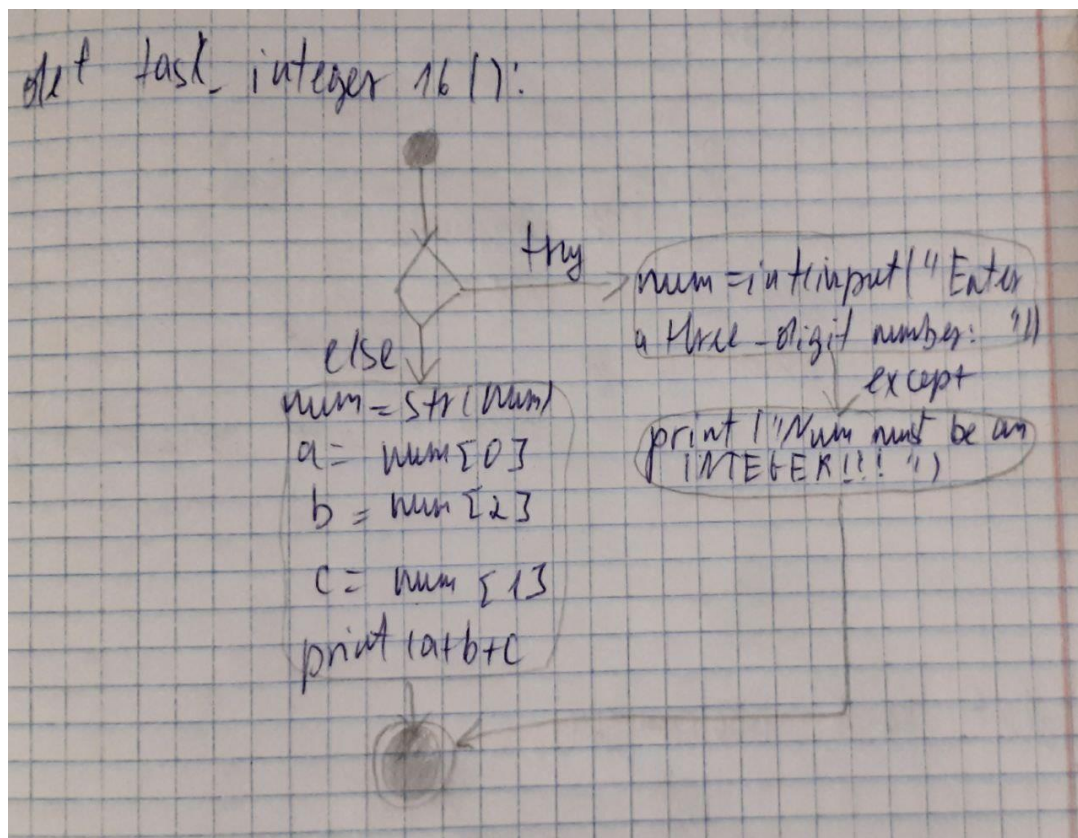 def task_integer 16 ():
try
num=int(input("Enter
a three-digit number: "))
except
print ("Num must be an
INTEGER!!! ")
else
num=str(num)
a= num[0]
b = num[2]
c= num [1]
print (a+b+c